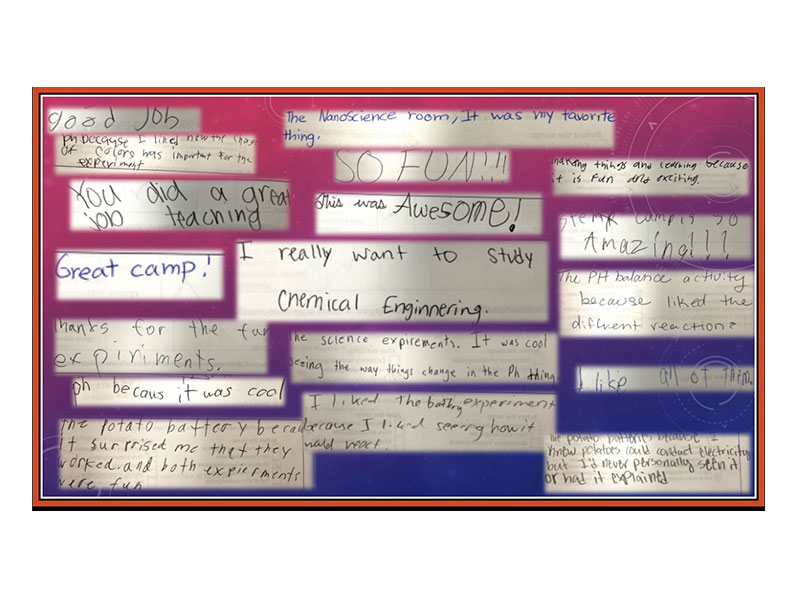 good Job
ph because I liked how the change
of colors was important for the
experiment
You did a great
job teaching
Great camp!
thanks for the fun
expiriments.
ph becaus it was cool
the potato battery becau
it surprised me that they
worked and both expierments
were fun
The Nanoscience room, It was my favorite
thing.
SO FUN!!!
This was Awesome!
I really want to study
Chemical Enginnering.
the science expirements. It was cool
seeing the way things change in the Ph thing.
I liked the battry experiment
because I liked seeing how it
would react.
making things and learning because
it is fun and exciting.
camp is so
Amazing!!!
The PH balance activity
because liked the
different reactions
I like all of them.
the potato batteries because I
knew potatoes could conduct electricity
but I'd never personally seen it
or had it explained